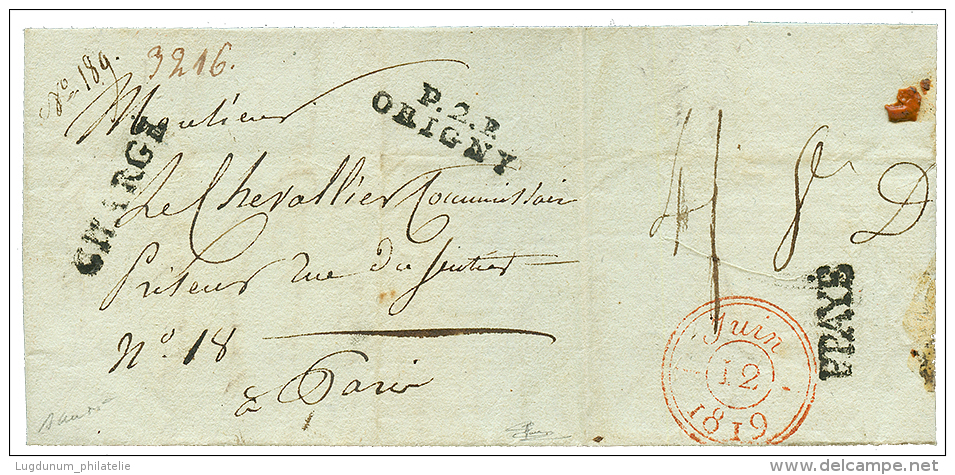 No 189.
3216.
P.2.P.
ORIGNY
CHARGÉ
Monsieur
Le Chevallier Commissair
Priseur rue du Sentier
No. 18
à Paris
D
APAYÉ
Juin
12
1819
Lugdunum_philatelie
delcampe.net